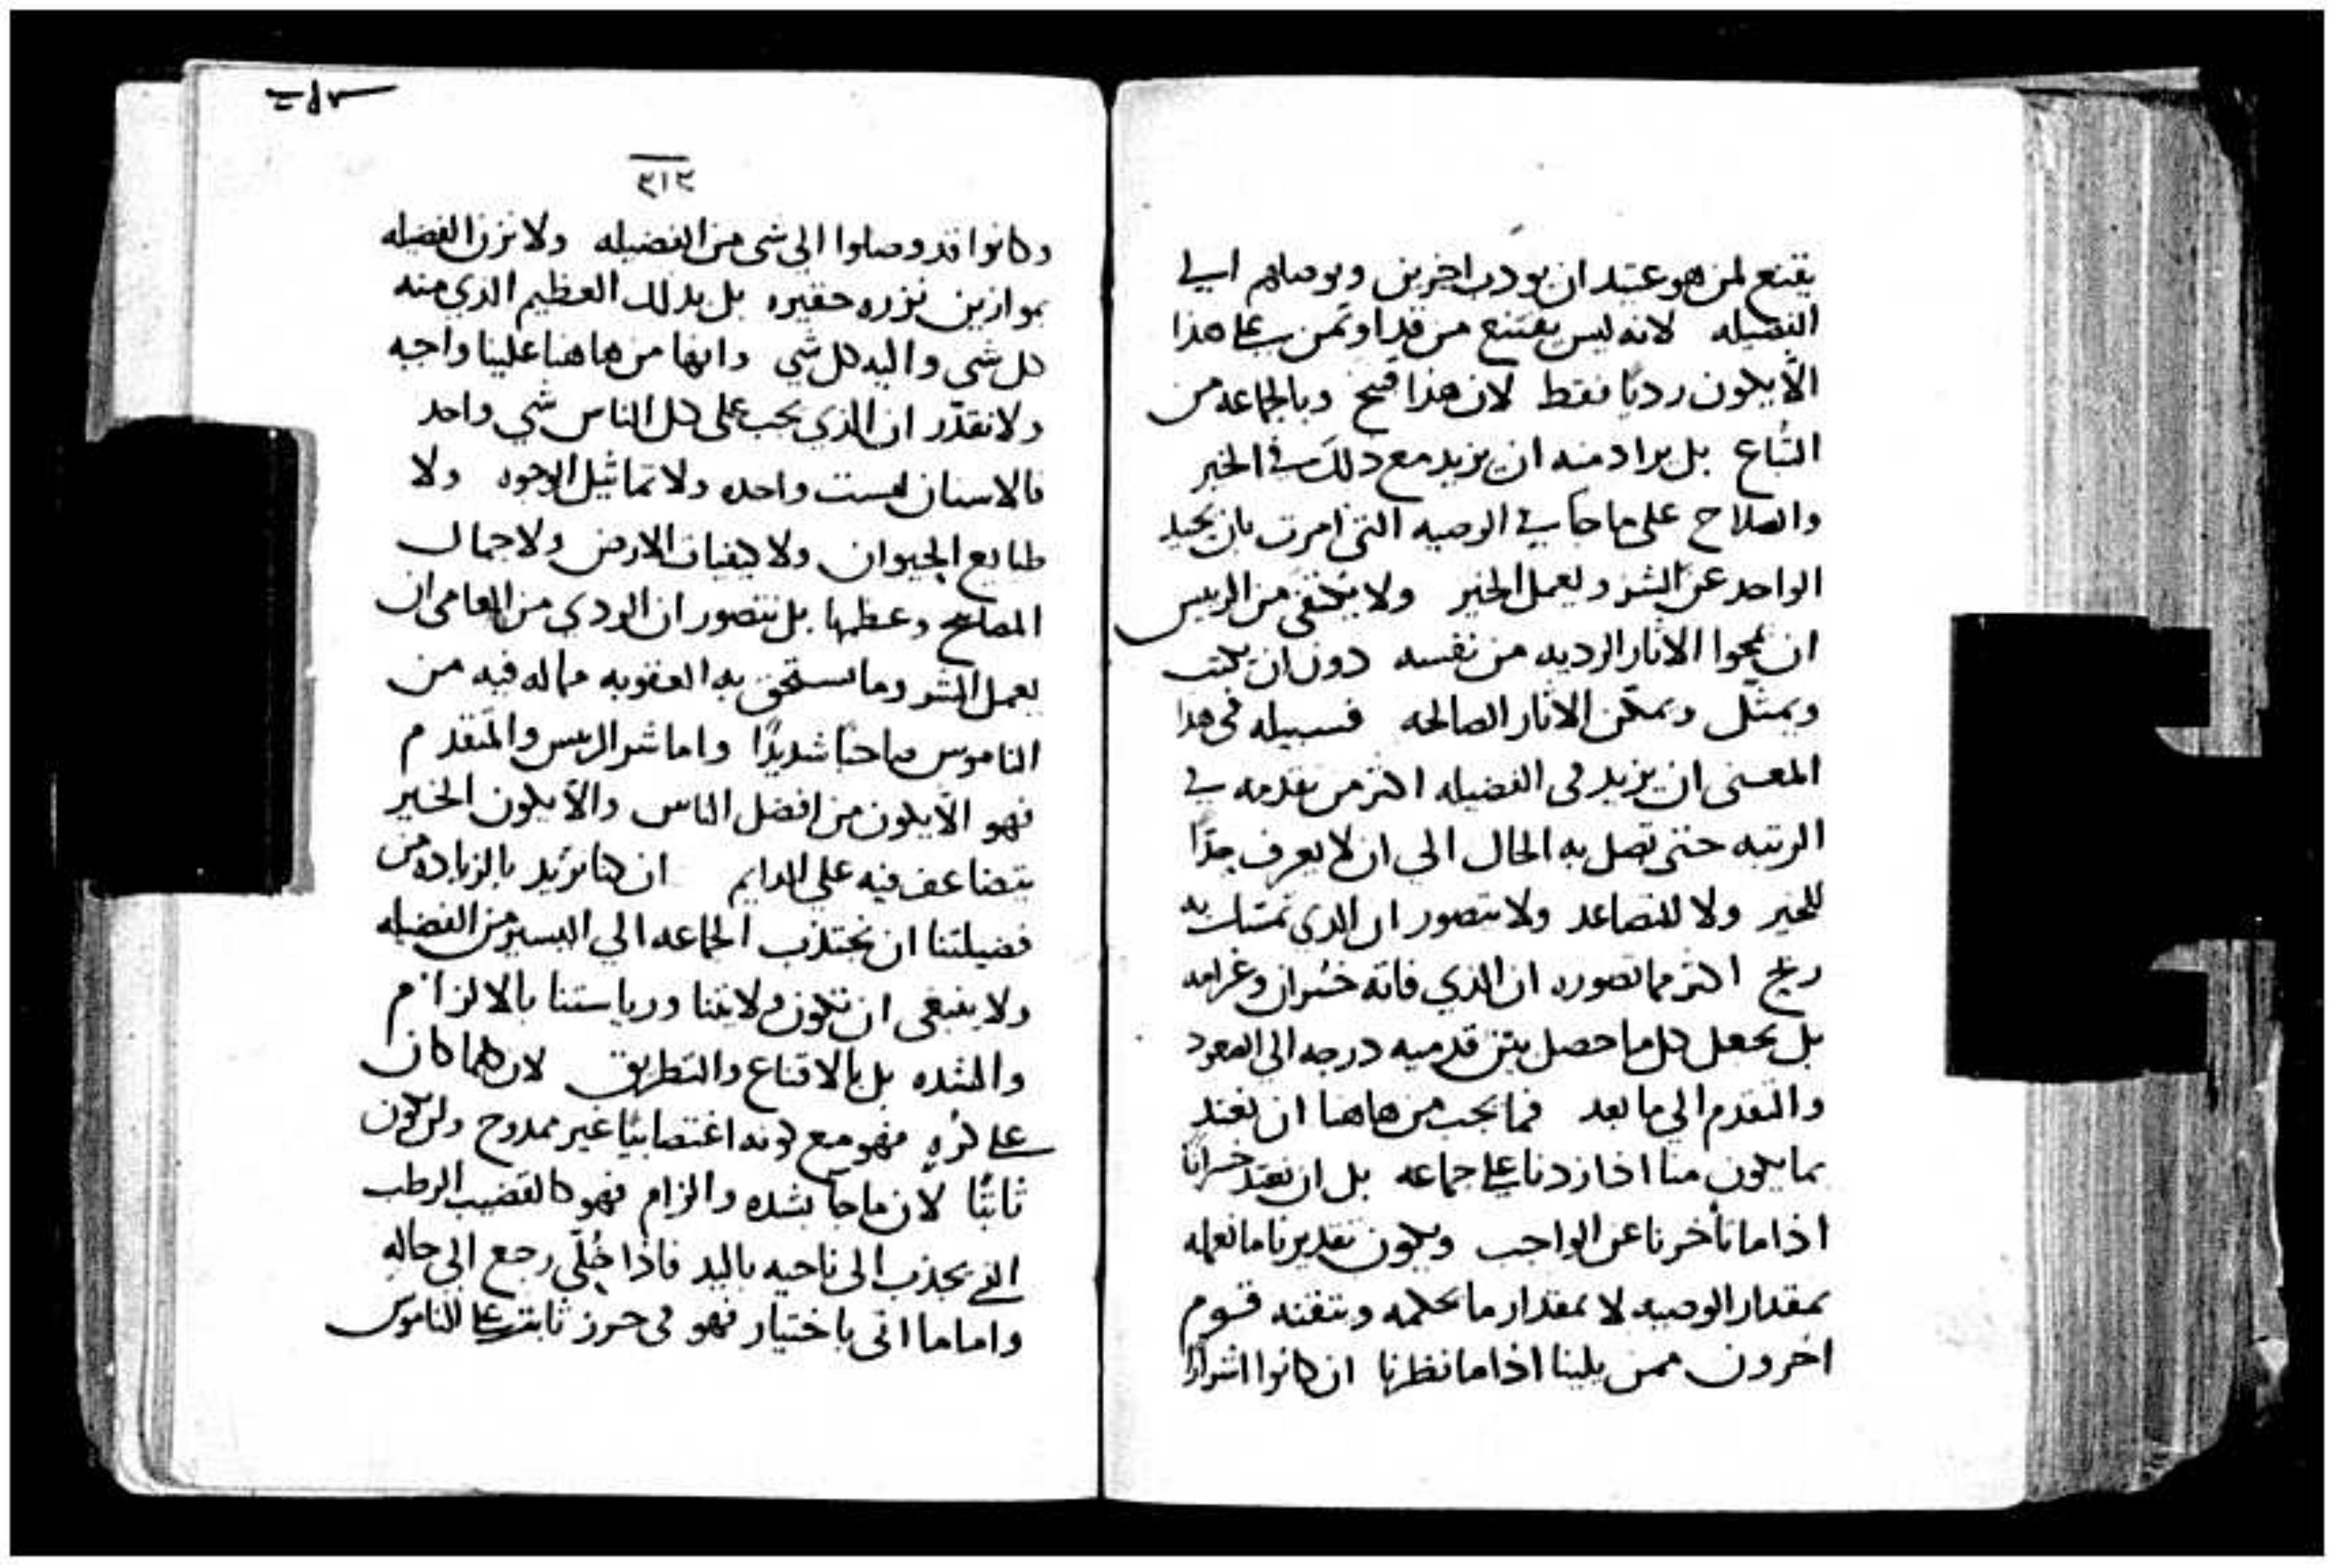 يقنع لمن هو عتيد ان يودب اخرين ويوصلهم الي
الفضيله لانه ليس يقتنع من قد اوتمن على هذا
الّا يكون رديًا فقط لان هذا قبيح وبالجماعه من
التباع بل يراد منه ان يزيد مع ذلك في الخير
والصلاح على ما جا في الوصيه التى امرت بان يحيد
الواحد عن الشر ويعمل الخير ولا يكتفى من الرييس
ان يمحوا الاثار الرديه من نفسه دون ان يكتب
ويمثل ويمكّن الاثار الصالحه فسبيله فى هذا
المعنى ان يزيد فى الفضيله اكثر من تقدمه في
الرتبه حتى تصل به الحال الى ان لا يعرف حدًا
للخير ولا للتصاعد ولا يتصور ان الدى تمسك به
ربح اكثر مما تصوره ان الذي فاته خسران وغرامه
بل يجعل كل ما حصل بين قدميه درجه الي الصعود
والتقدم الي ما بعد فما يجب من هاهنا ان نعتد
بما يكون منا اذا زدنا على جماعه بل ان نعتد خسرانًا
اذا ما تأخرنا عن الواجب ويكون تقديرنا ما نعمله
بمقدار الوصيه لا بمقدار ما يحكمه ويتقنه قوم
اخرون ممن يلينا اذا ما نظرنا ان كانوا اشرارًا
٣١٣
وكانوا قد وصلوا الى شى من الفضيله ولا نزن الفضيله
بموازين نزره حقيره بل بدلك العظيم الذي منه
كل شي واليه كل شي وانها من هاهنا علينا واجبه
ولا نقدّر ان الذي يجب على كل الناس شي واحد
فالاسنان ليست واحده ولا تماثيل الوجوه ولا
طبايع الحيوان ولا كيفيات الارض ولا جمال
المصابيح وعظمها بل نتصور ان الردي من العامى ان
يعمل الشر وما يستحق به العقوبه مما له فيه من
الناموس صاحبًا شديدًا واما شر الرييس والمتقدم
فهو الّا يكون من افضل الناس والّا يكون الخير
يتضاعف فيه على الدايم ان كنا نريد بالزياده من
فضيلتنا ان نجتذب الجماعه الي اليسير من الفضيله
ولا ينبغى ان تكون ولايتنا ورياستنا بالالزام
والشده بل بالاقناع والتطريق لان كلما كان
على كُرهٍ فهو مع كونه اغتصابيًا غير ممدوح ولن يكون
ثابتًا لان ما جا بشده والزام فهو كالقضيب الرطب
الذي يجذب الى ناحيه باليد فاذا خُلّي رجع الي حاله
واما ما اتى باختيار فهو فى حرز ثابت على الناموس